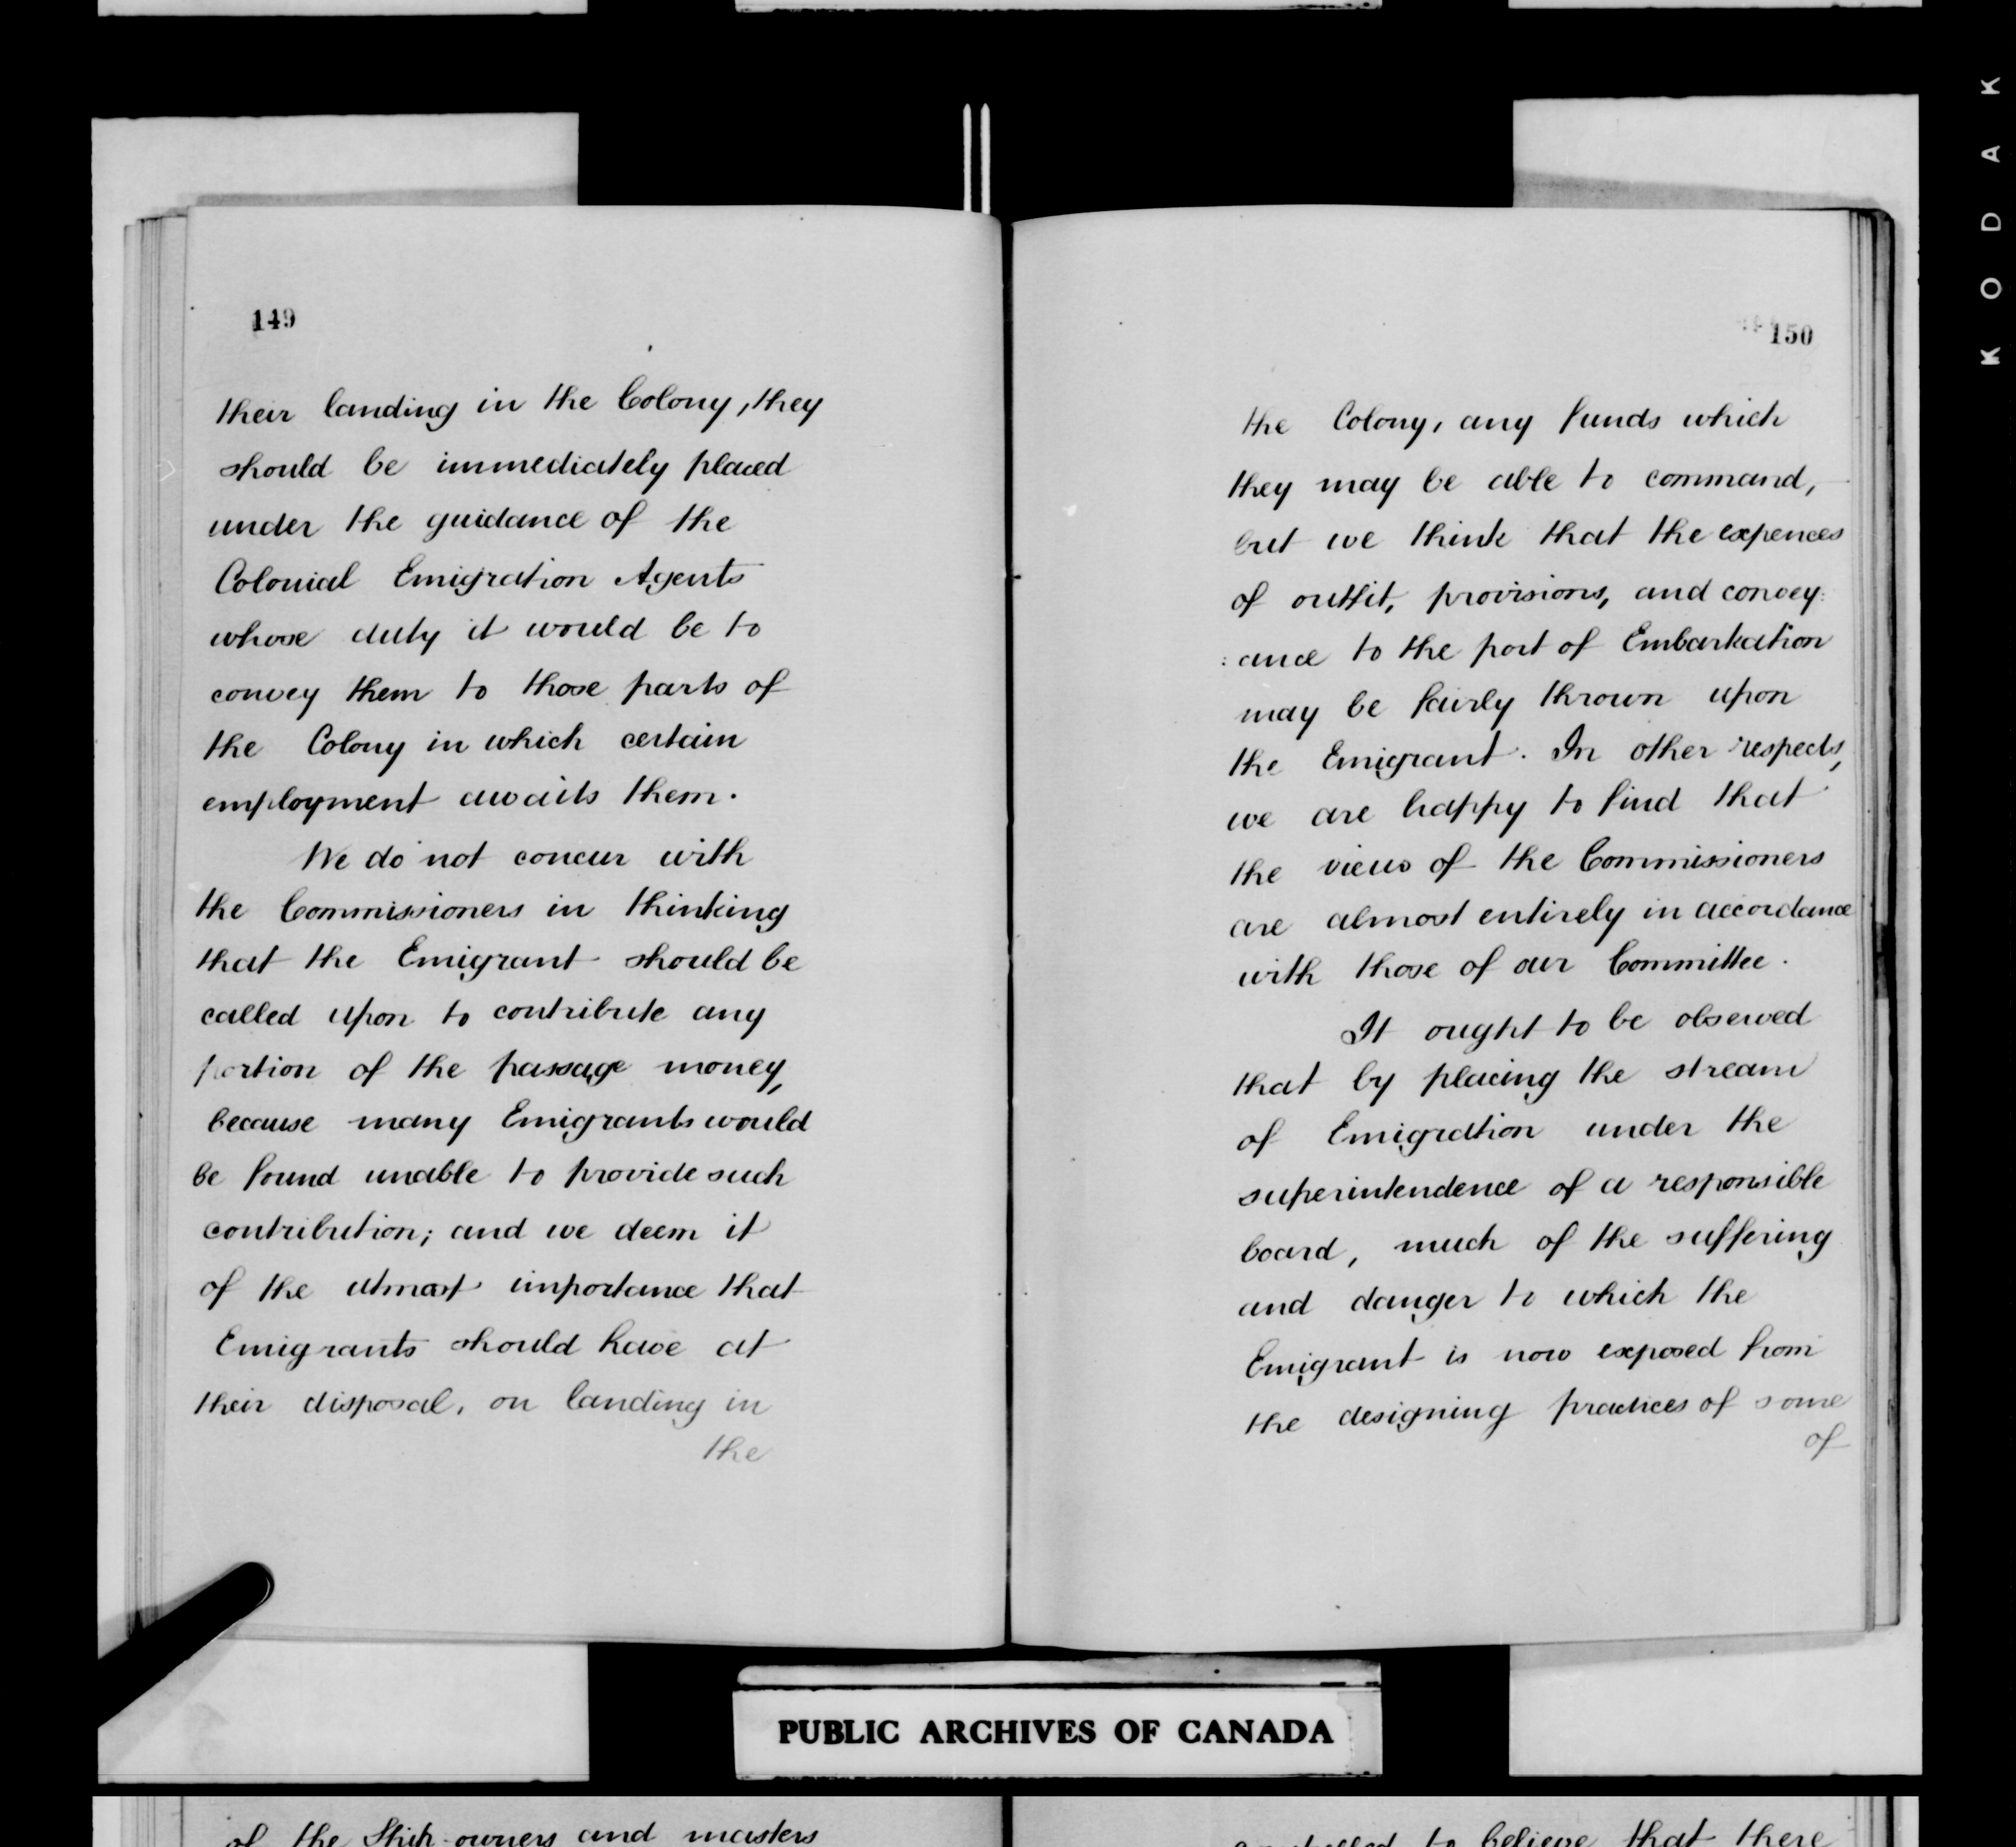 149
their landing in the Colony, they
should be immediately placed
under the guidance of the
Colonial Emigration Agents
whose duty it would be to
convey them to those parts of
the Colony in which certain
employment awaits them.
We do not concur with
the Commissioners in thinking
that the Emigrant should be
called upon to contribute any
portion of the passage money,
because many Emigrants would
be found unable to provide such
contribution; and we deem it
of the utmost importance that
Emigrants should have at
their disposal, on landing in
the
150
the Colony, any funds which
they may be able to command,
but we think that the expences
of outfit, provisions, and convey:
:ance to the port of Embarkation
may be fairly thrown upon
the Emigrant. In other respects,
we are happy to find that
the views of the Commissioners
are almost entirely in accordance
with those of our Committee.
It ought to be observed
that by placing the stream
of Emigration under the
superintendence of a responsible
board, much of the suffering
and danger to which the
Emigrant is now exposed from
the designing practices of some
of
KODAK
PUBLIC ARCHIVES OF CANADA
of the Ship-owners and masters
to believe that there